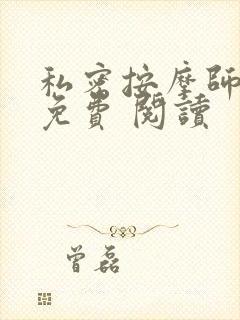 私密按摩師
免費 閱讀
曾磊